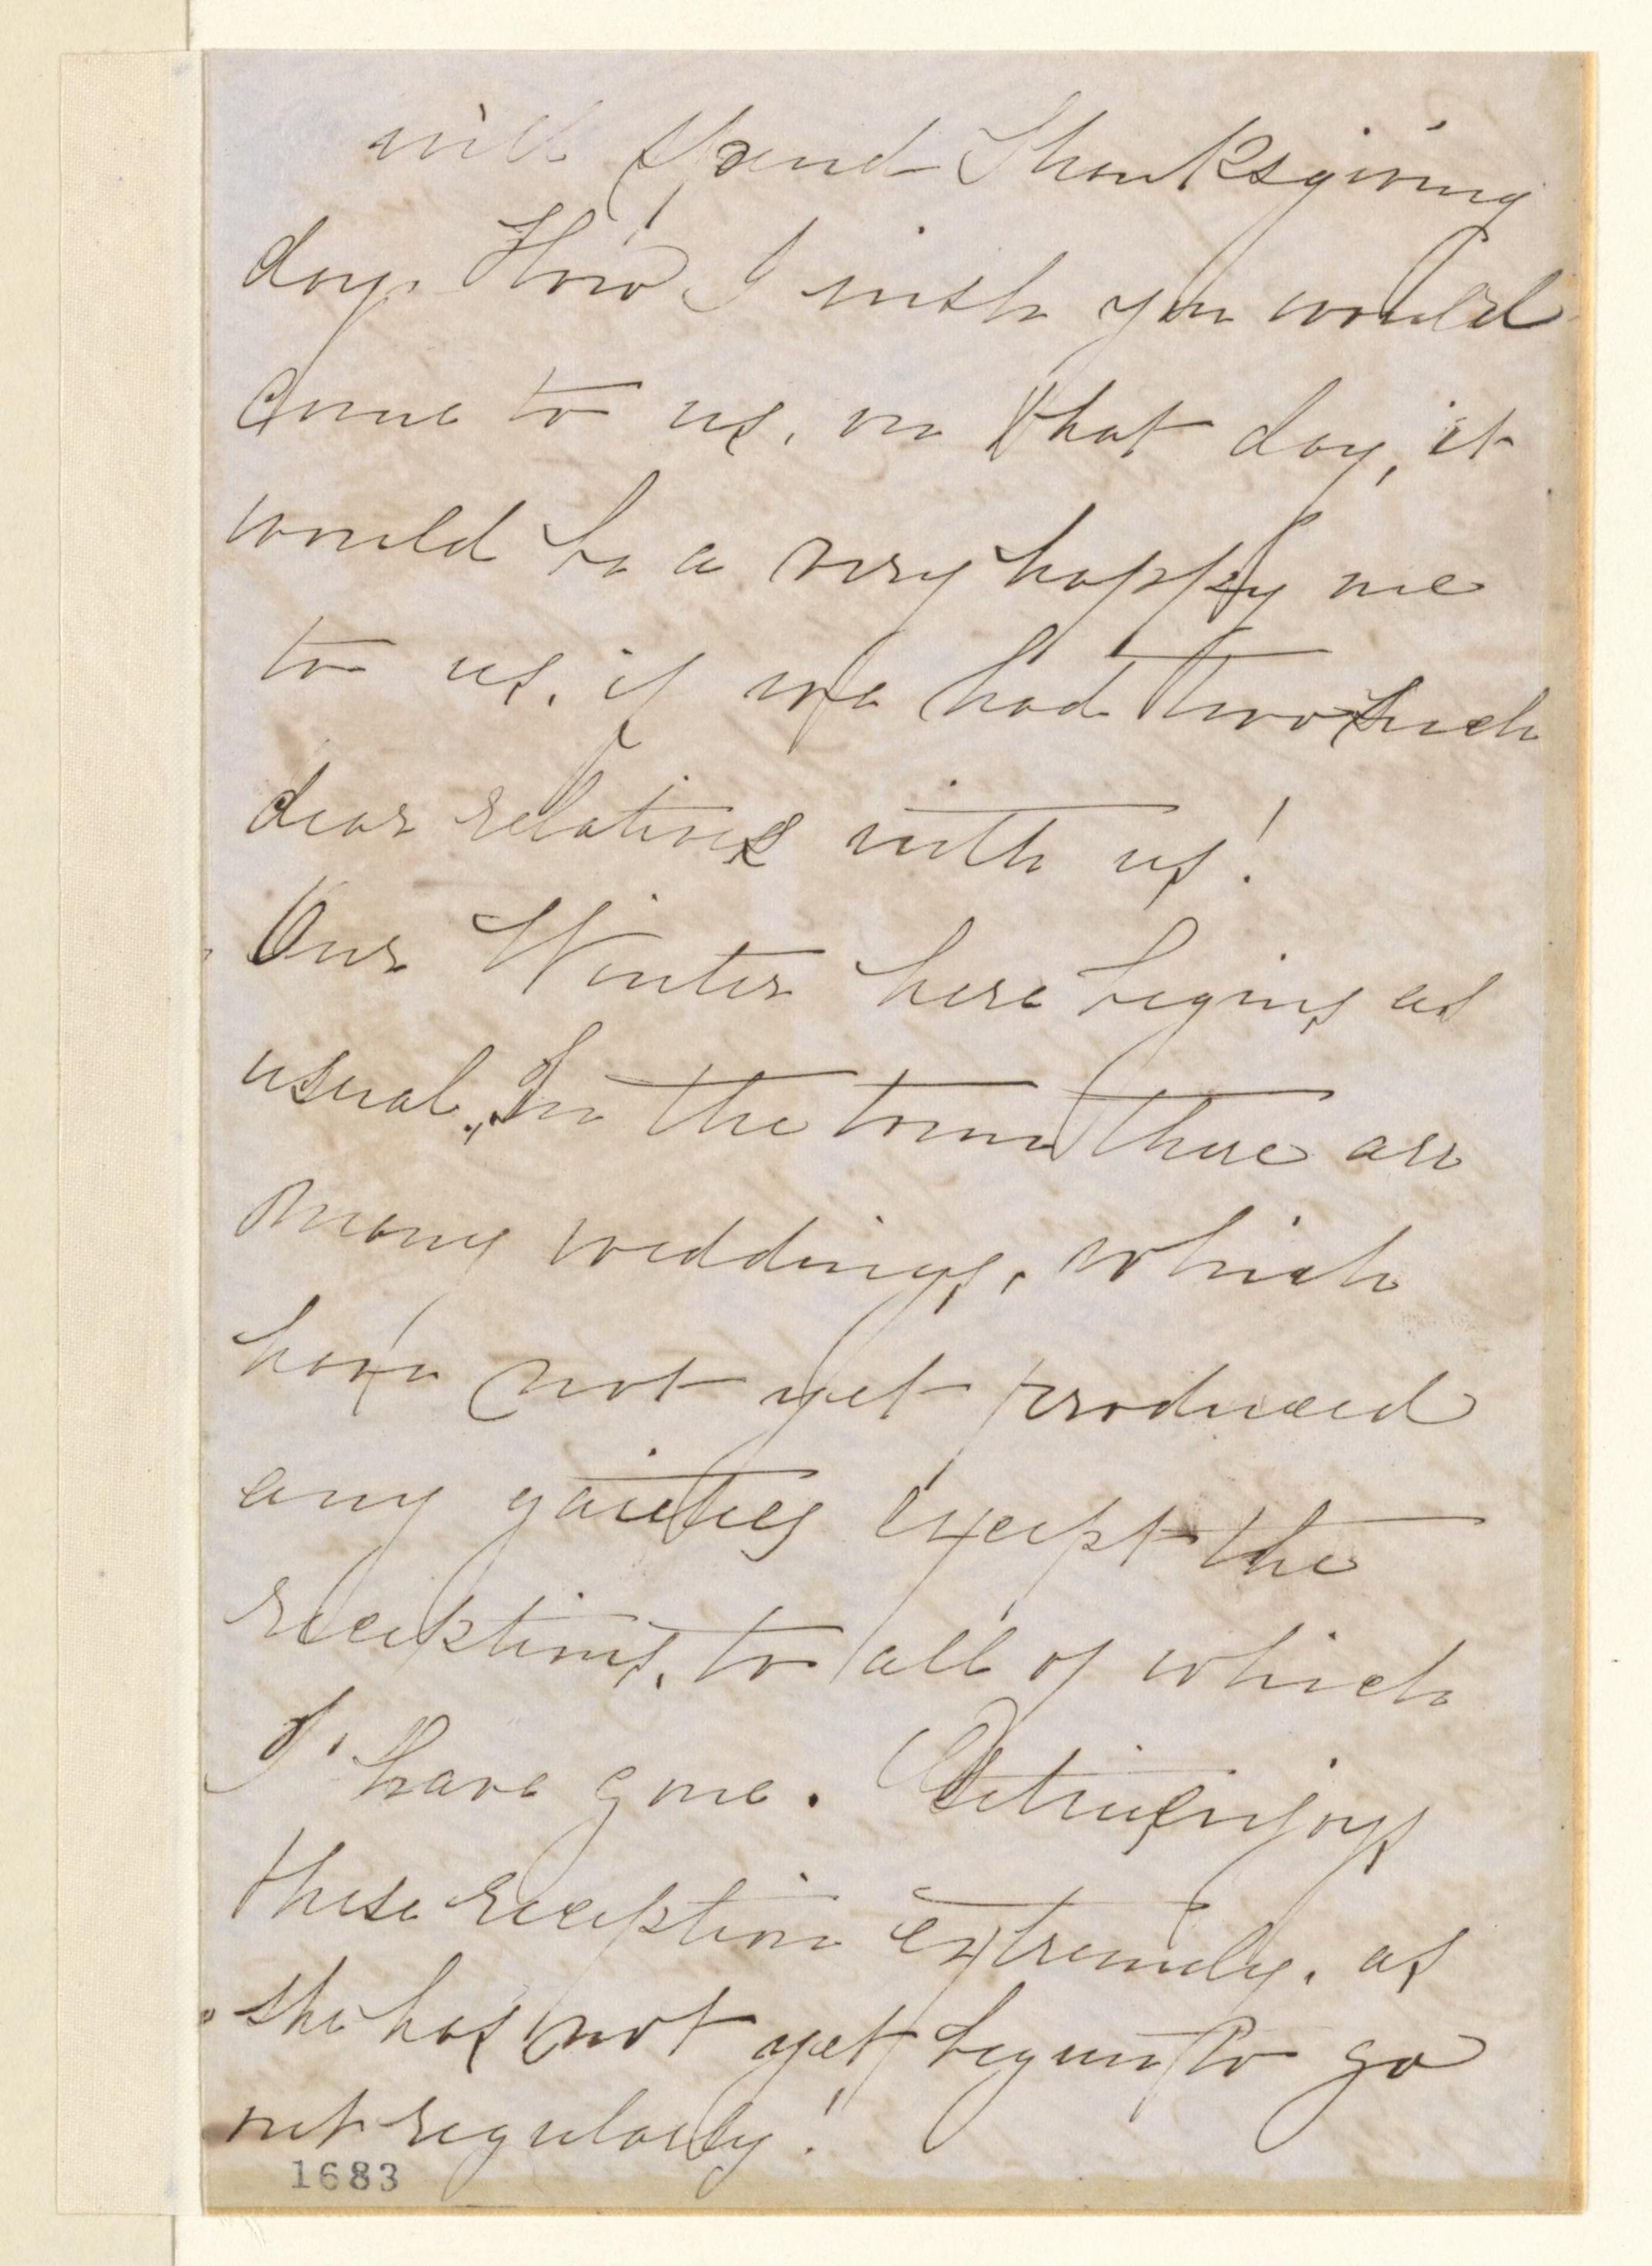 will spend Thanksgiving
day. How I wish you would
come to us, on that day, it
would be a very happy one
to us, if we had two such
dear relatives with us!
Our Winter here begins as
usual., In the town there are
many weddings, which
have not yet produced
any gaieties except the
receptions, to all of which
I have gone. enjoys
these reception extremely, as
she has not yet begun to go
out regularly!
1683